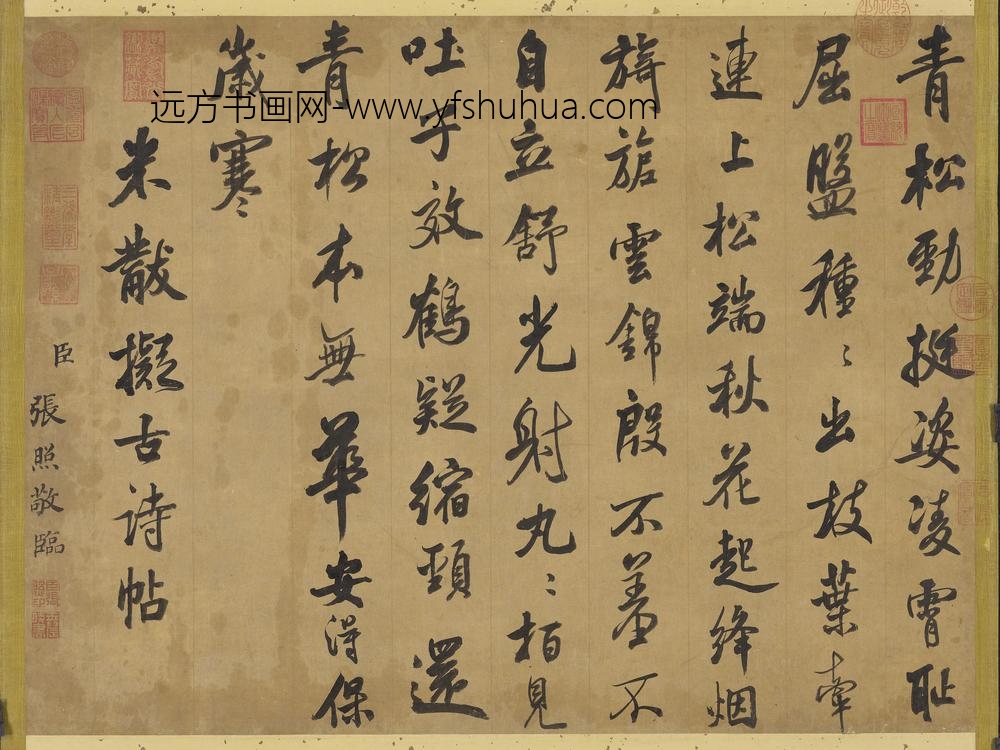 青松勁挺姿凌霄恥
屈盤種〻出枝葉牽
連上松端秋花起絳烟
旖旎雲錦殷不羞不
自立舒光射丸〻栢見
吐子效鶴疑縮頸還
青松本無華安得保
歲寒
米黻擬古詩帖
臣張照敬臨
远方书画网-www.yfshuhua.com